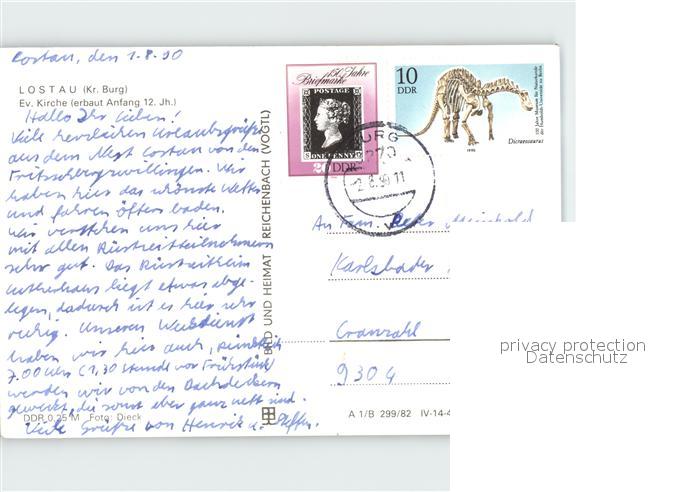 Lostau, den 1.8.90
LOSTAU (Kr. Burg)
Ev. Kirche (erbaut Anfang 12. Jh.)
Hallo Ihr Lieben!
Viele herzlichen Urlaubsgrüße
aus dem Nest Lostau von den
Wir
haben hier das schönste Wetter
und fahren öfters baden.
Wir verstehen uns hier
mit allen Rüstzeitteilnehmern
sehr gut. Das Rüstzeitheim
Lutherhaus liegt etwas abge-
legen, dadurch ist es hier sehr
ruhig. Unseren Weckdienst
haben wir hier auch, pünktlich
7.00 Uhr (1,30 Stunde vor Frühstück)
werden wir von den Dachdeckern
geweckt, die sonst aber ganz nett sind.
Viele Grüße von Henrik u. Steffen.
DDR 0,25 M Foto: Dieck
BILD UND HEIMAT REICHENBACH (VOGTL)
150 Jahre
Briefmarke
POSTAGE
ONE PENNY
20 DDR
10
DDR
100 Jahre Museum für Naturkunde
der Humboldt-Universität zu Berlin
Dicraeosaurus
1990
BURG
-2.8.90.11
An Fam.
Karlsbader
Cranzahl
9304
A 1/B 299/82 IV-14-4
privacy protection
Datenschutz